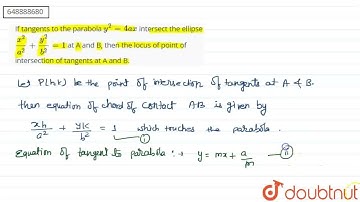 648888680
If tangents to the parabola y² = 4ax intersect the ellipse
x²/a² + y²/b² = 1 at A and B, then the locus of point of
intersection of tangents at A and B.
Let P(h,k) be the point of intersection of tangents at A & B.
then equation of chord of contact AB is given by
xh/a² + yk/b² = 1 which touches the parabola.
①
Equation of tangent to parabola :→ y = mx + a/m
②
doubtnut